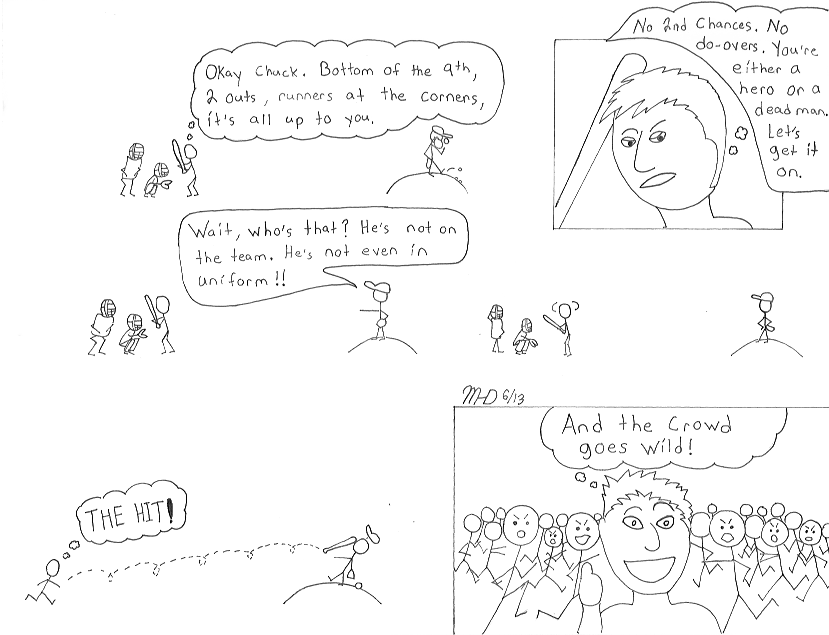 Okay Chuck. Bottom of the 9th,
2 outs, runners at the corners,
it's all up to you.
No 2nd Chances. No
do-overs. You're
either a
hero or a
dead man.
Let's
get it
on.
Wait, who's that? He's not on
the team. He's not even in
uniform!!
THE HIT!
MHD 6/13
And the Crowd
goes wild!